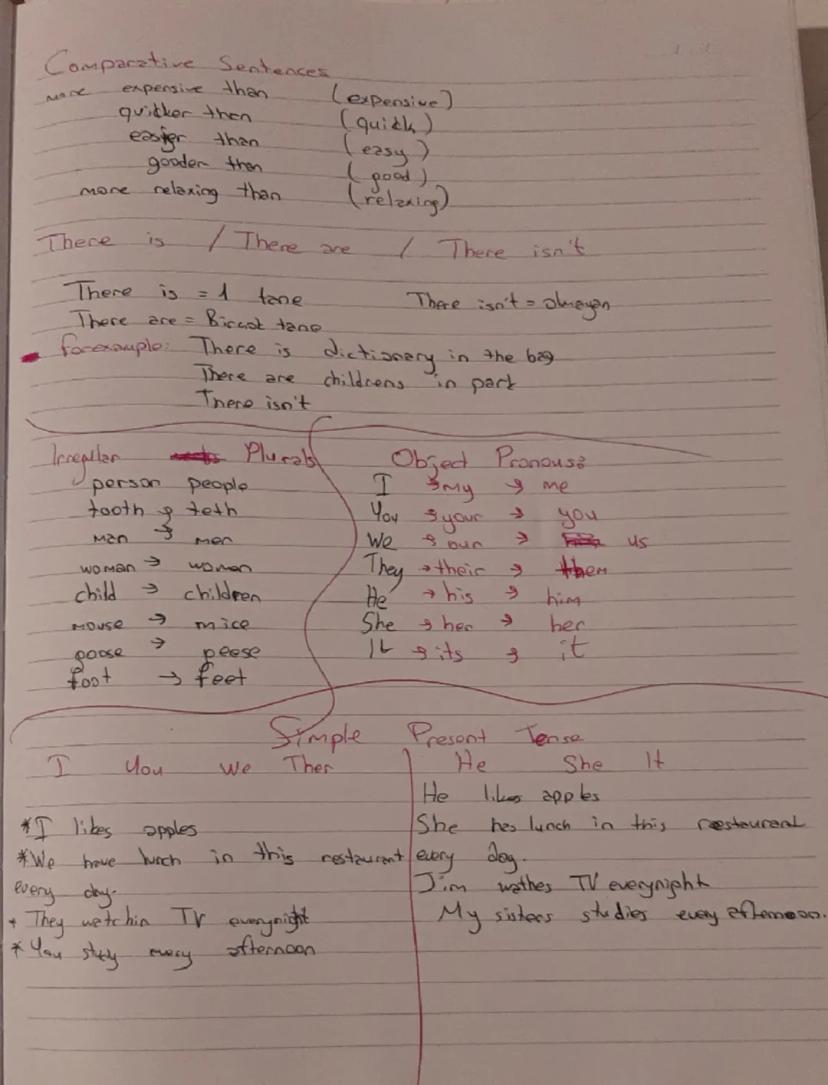 Comparative Sentences
more expensive than (expensive)
quicker then (quick)
easier than (easy)
gooder than (good)
more relaxing than (relaxing)
There is / There are / There isn't
There is = 1 tane There isn't = olmayan
There are = Birçok tane
for example: There is dictionary in the bag
There are childrens in park
There isn't
Irregular Plurals
person people
tooth → teth
man → men
woman → women
child → children
mouse → mice
goose → peese
foot → feet
Object Pronous:
I → my → me
You → your → you
We → our → us
They → their → them
He → his → him
She → her → her
It → its → it
Simple Present Tense
I You We Ther
*I likes apples
*We have lunch in this restaurant
every day.
* They watchin TV everynight
* You study every afternoon
He She It
He likes apples
She has lunch in this restaurant
every day.
Jim wathes TV everynight
My sisters studies every afternoon.